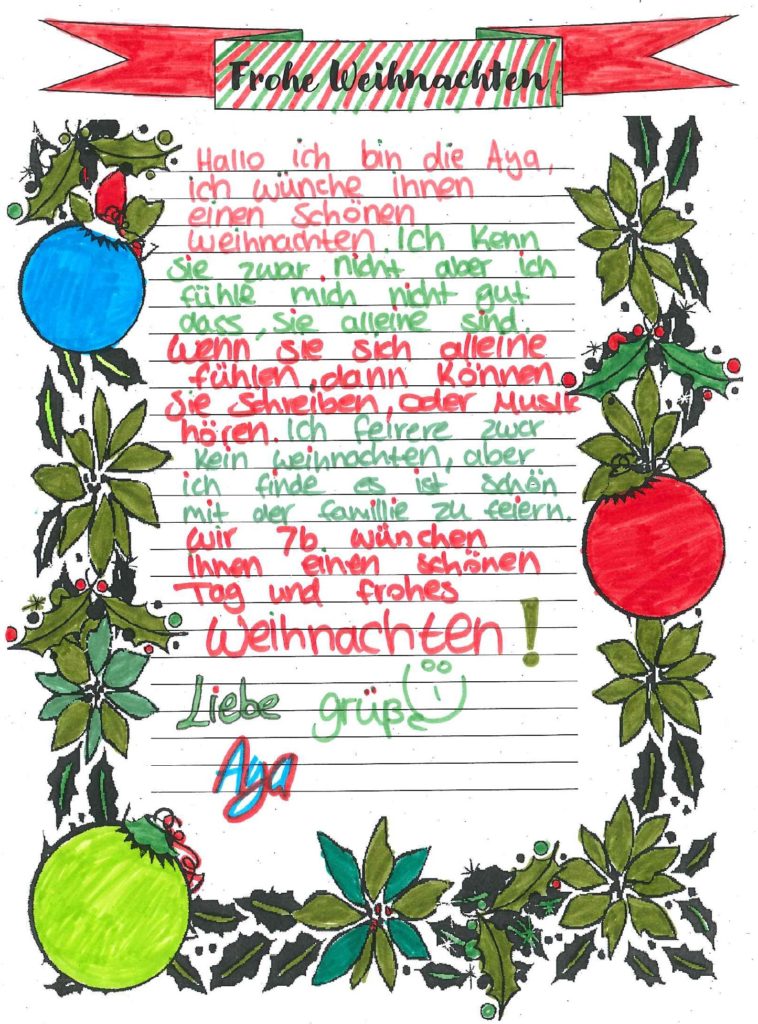 Frohe Weihnachten
Hallo ich bin die Aya,
ich wünche ihnen
einen Schönen
Weihnachten. Ich Kenn
Sie zwar nicht aber ich
fühle mich nicht gut
dass, Sie alleine sind.
Wenn sie sich alleine
fühlen, dann Können
Sie Schreiben, oder Musik
hören. Ich feirere zwar
kein weihnachten, aber
ich finde es ist schön
mit der famillie zu feiern.
Wir 7b wünchen
Ihnen einen schönen
Tag und frohes
Weihnachten!
Liebe grüße
Aya